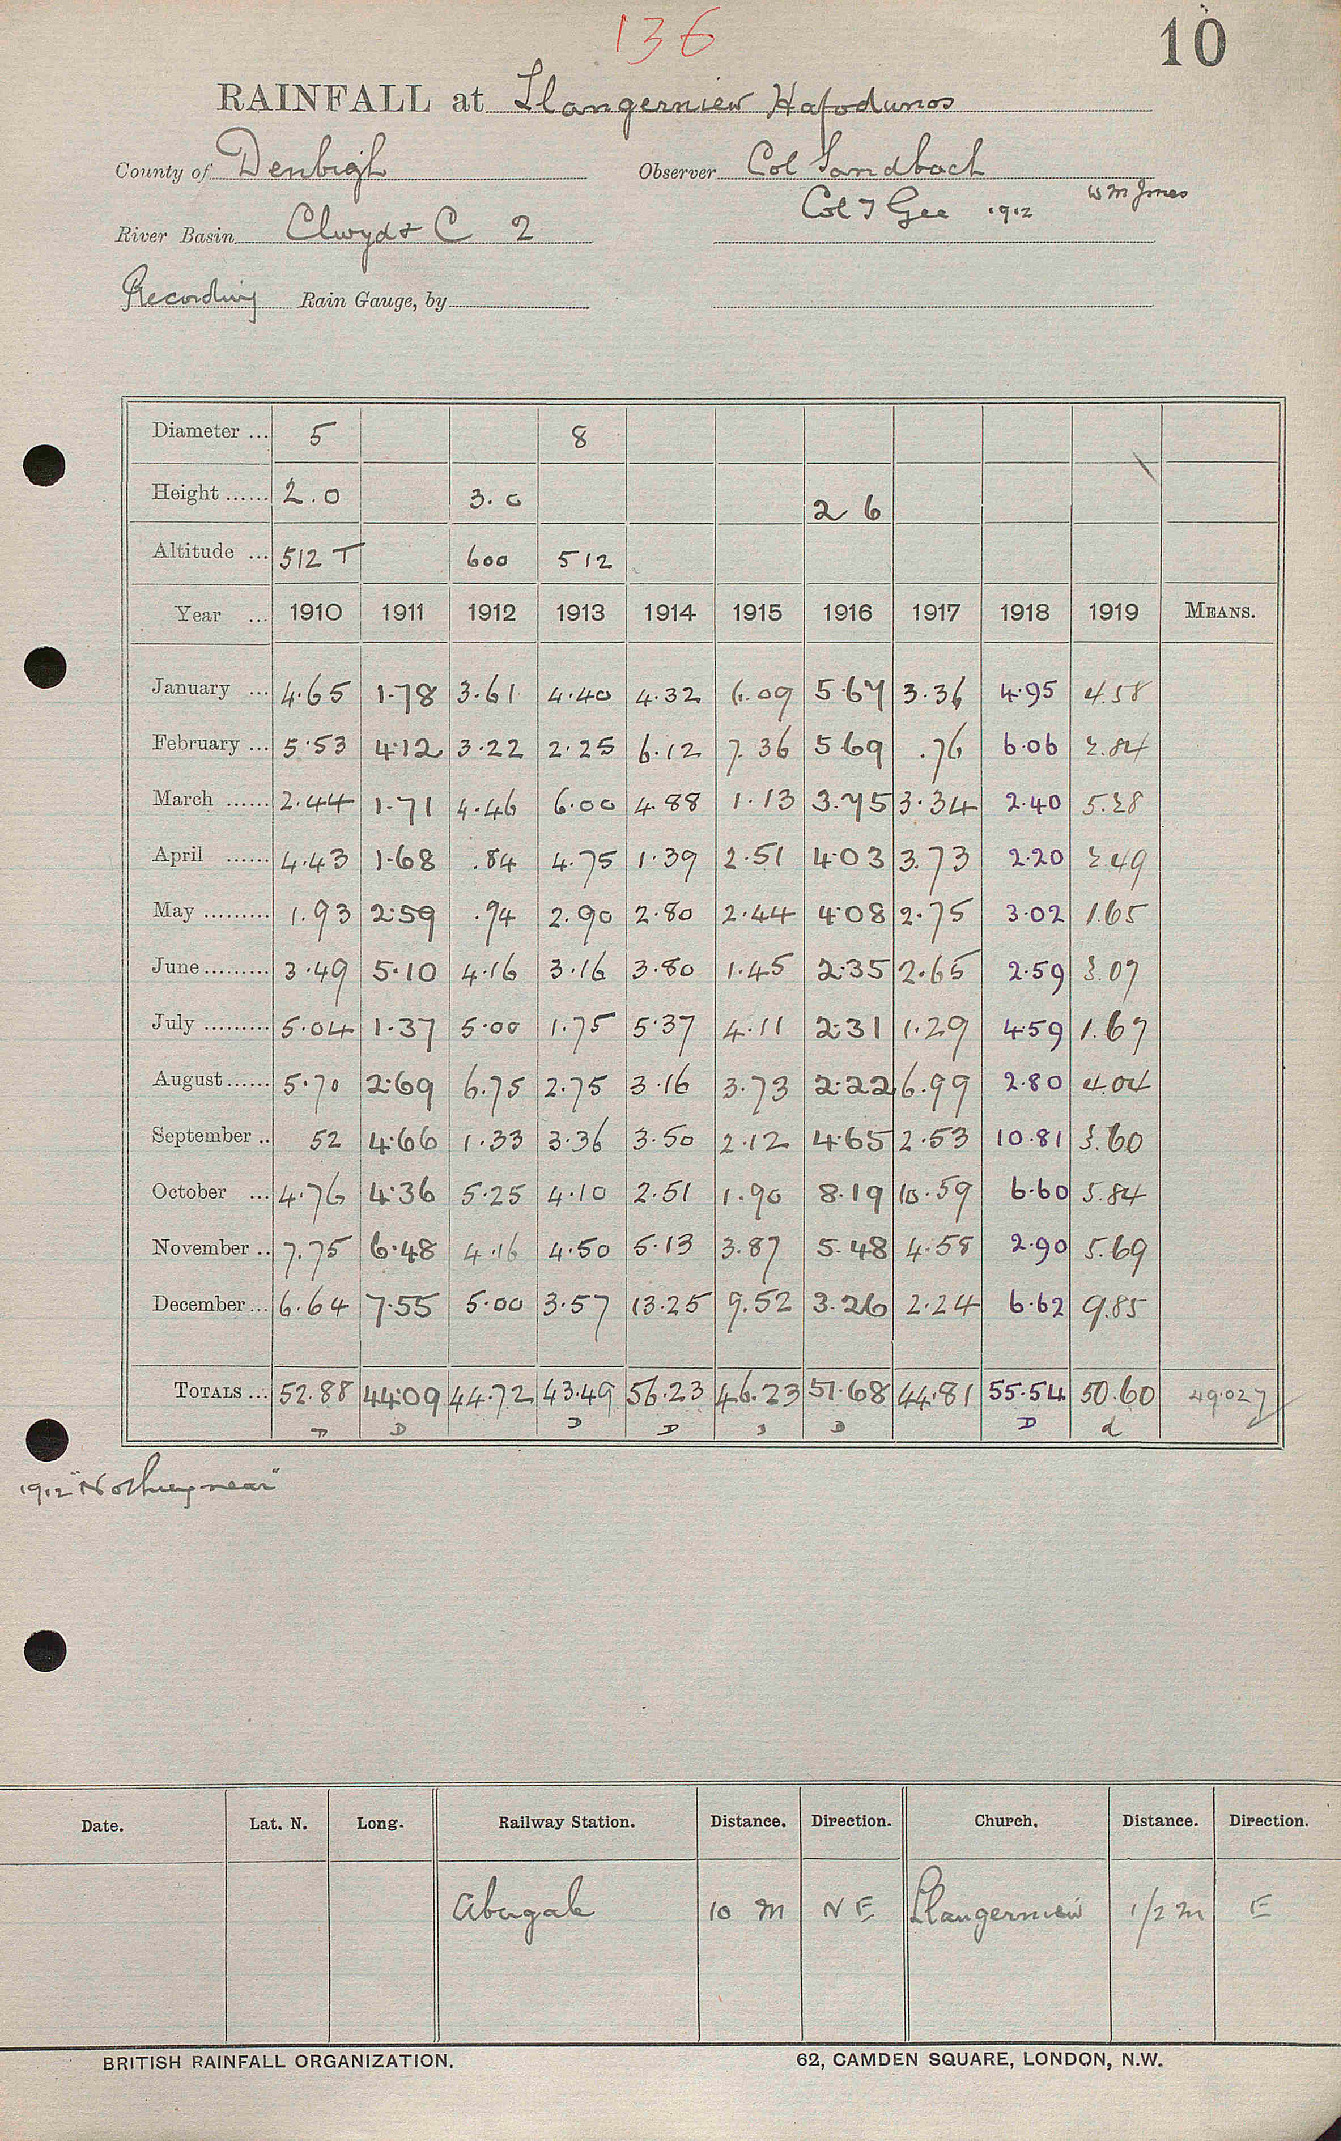 136
10
RAINFALL at Llangerniew Hafodunos
County of Denbigh Observer Col Sandbach
Col T Gee 1912 Wm Jones
River Basin Clwyd & C 2
Recording Rain Gauge, by
Diameter ... 5 8
Height ...... 2.0 3.0 2 6
Altitude ... 512 T 600 512
Year ... 1910 1911 1912 1913 1914 1915 1916 1917 1918 1919 MEANS.
January ... 4.65 1.78 3.61 4.40 4.32 6.09 5.67 3.36 4.95 4.58
February ... 5.53 4.12 3.22 2.25 6.12 7.36 5 69 .76 6.06 2.84
March ...... 2.44 1.71 4.46 6.00 4.88 1.13 3.75 3.34 2.40 5.28
April ...... 4.43 1.68 .84 4.75 1.39 2.51 4.03 3.73 2.20 2.49
May ......... 1.93 2.59 .94 2.90 2.80 2.44 4.08 2.75 3.02 1.65
June ......... 3.49 5.10 4.16 3.16 3.80 1.45 2.35 2.65 2.59 3.07
July ......... 5.04 1.37 5.00 1.75 5.37 4.11 2.31 1.29 4.59 1.67
August ...... 5.70 2.69 6.75 2.75 3.16 3.73 2.22 6.99 2.80 4.04
September .. 52 4.66 1.33 3.36 3.50 2.12 4.65 2.53 10.81 3.60
October ... 4.76 4.36 5.25 4.10 2.51 1.90 8.19 10.59 6.60 5.84
November .. 7.75 6.48 4.16 4.50 5.13 3.87 5.48 4.58 2.90 5.69
December ... 6.64 7.55 5.00 3.57 13.25 9.52 3.26 2.24 6.62 9.85
TOTALS ... 52.88 44.09 44.72 43.49 56.23 46.23 51.68 44.81 55.54 50.60 49.027
D D D D D D d
1912 "Nothing near"
Date. Lat. N. Long. Railway Station. Distance. Direction. Church. Distance. Direction.
Abergele 10 m N E Llangerniew 1/2 m E
BRITISH RAINFALL ORGANIZATION. 62, CAMDEN SQUARE, LONDON, N.W.